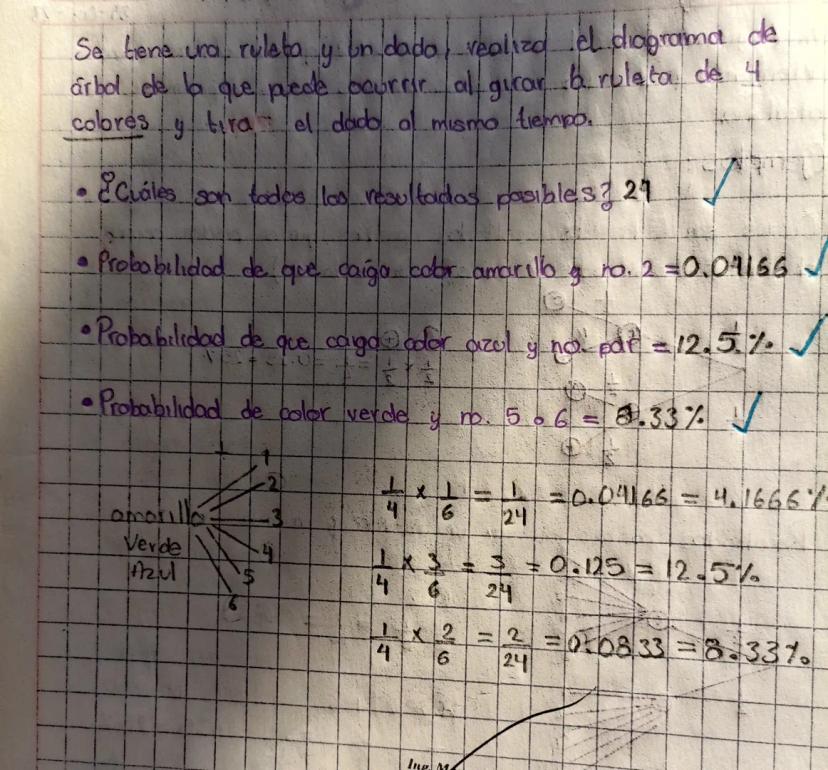 Se tiene una ruleta y un dado, realiza el diagrama de
árbol de lo que puede ocurrir al girar la ruleta de 4
colores y tirar el dado al mismo tiempo.
• ¿Cuáles son todos los resultados posibles? 24 ✓
• Probabilidad de que caiga color amarillo y no. 2 = 0.04166 ✓
• Probabilidad de que caiga color azul y no. par = 12.5 % ✓
• Probabilidad de color verde y no. 5 o 6 = 8.33 % ✓
amarillo
Verde
Azul
1
2
3
4
5
6
1/4 × 1/6 = 1/24 = 0.04166 = 4.1666 %
1/4 × 3/6 = 3/24 = 0.125 = 12.5 %
1/4 × 2/6 = 2/24 = 0.0833 = 8.33 %